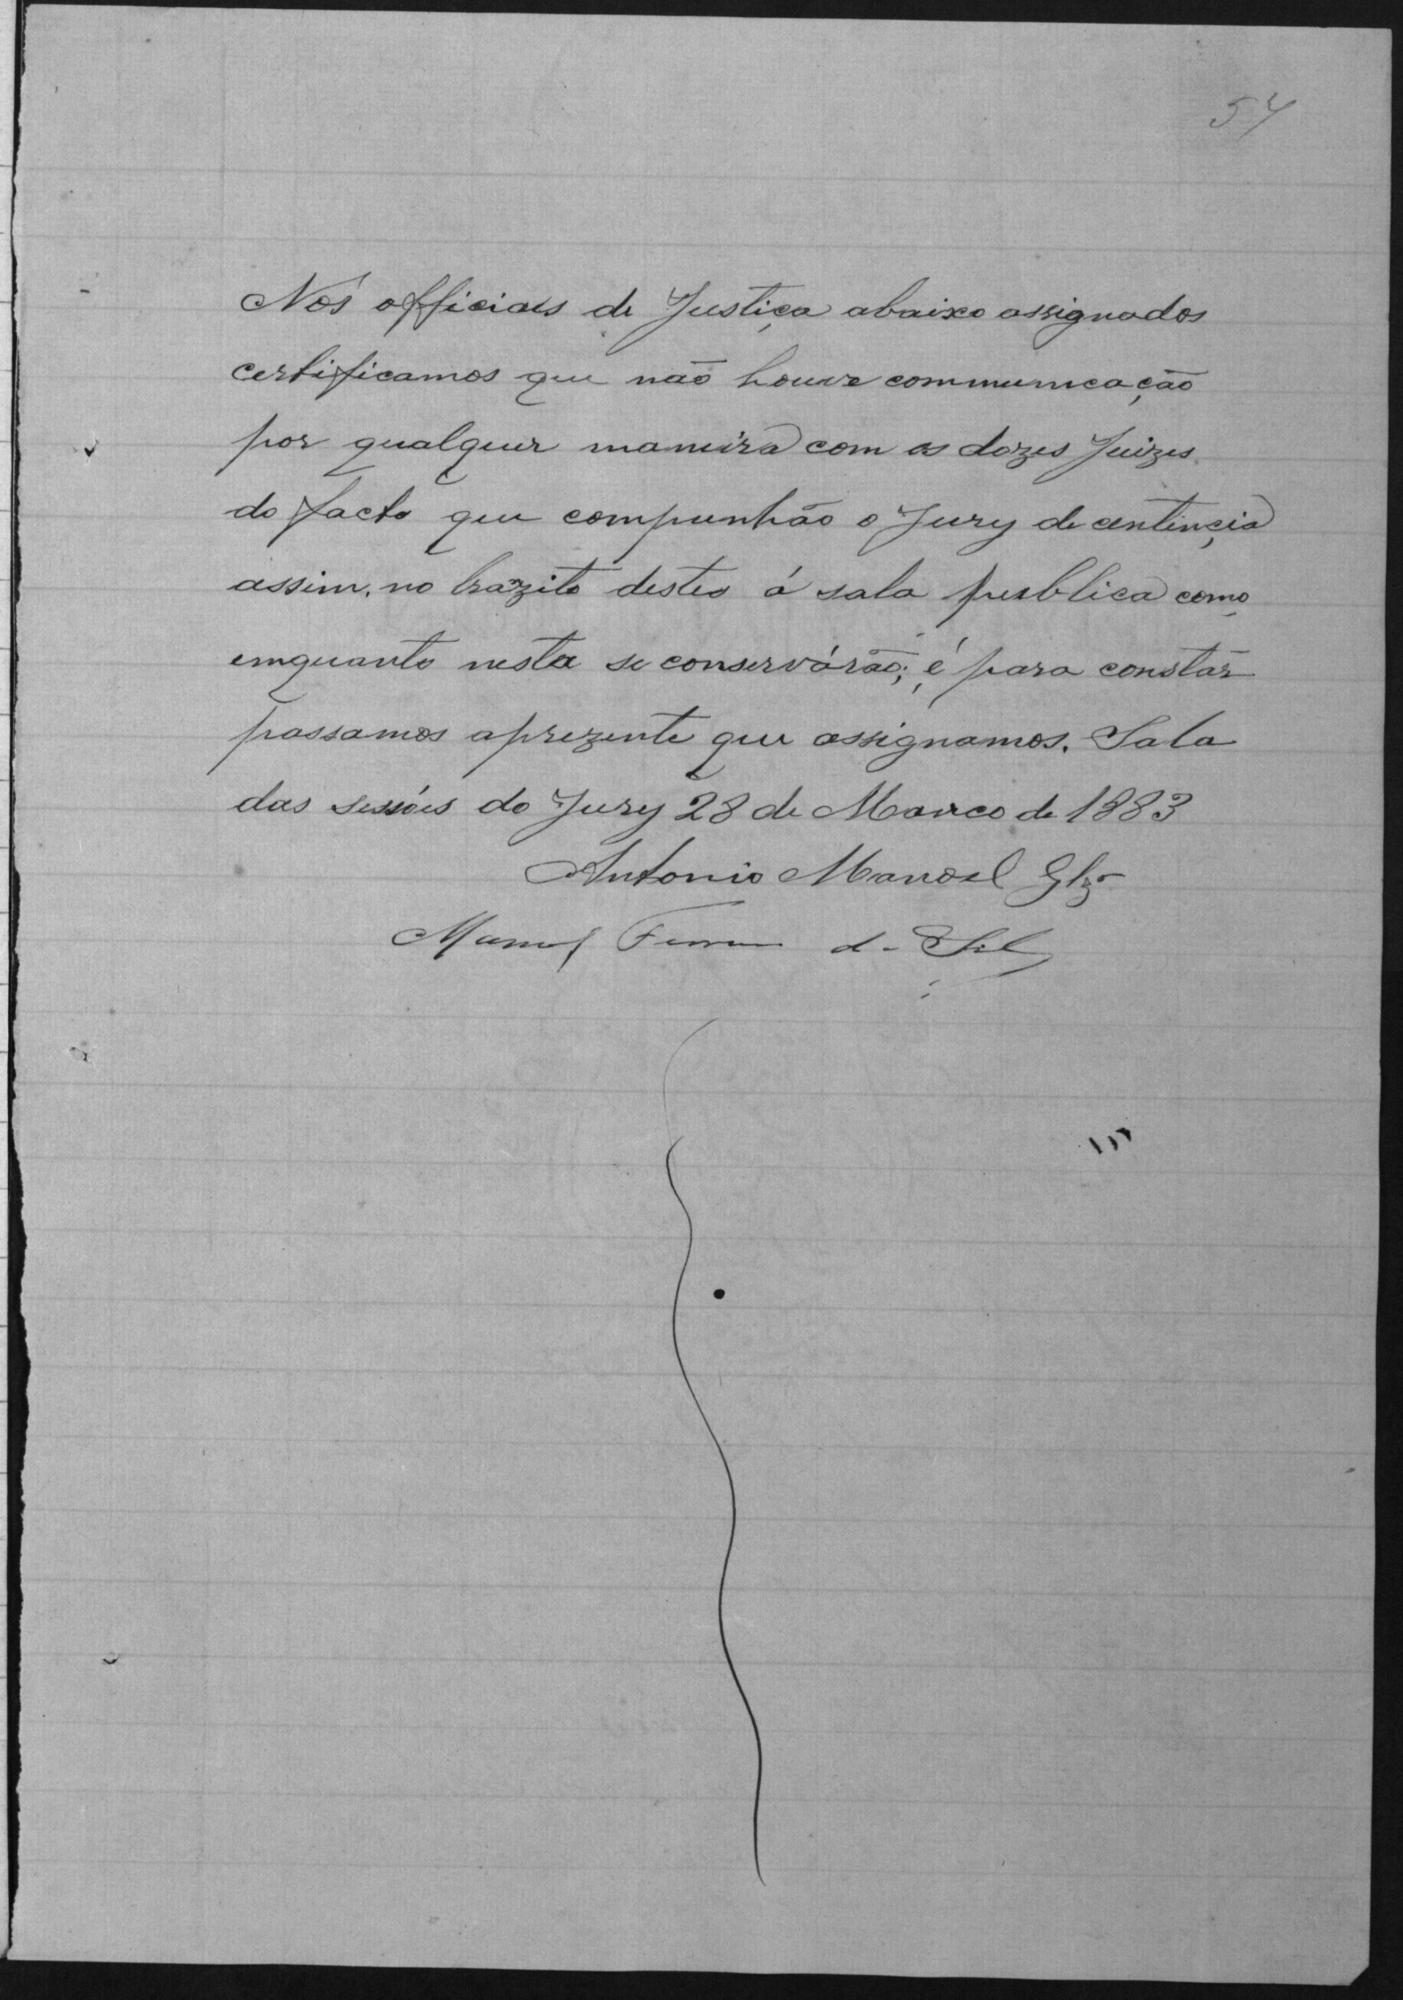 54
Nós officiaes de Justiça abaixo assignados
certificamos que não houve communicação
por qualquer maneira com os dozes Juizes
do facto que compunhão o Jury de centençia
assim, no trazito destes á sala publica como
emquanto nesta se conservárão; é para constár
passamos aprezente que assignamos. Sala
das sessóes do Jury 28 de Março de 1883
Antonio Manoel Glz
Manoel Ferreira da Silva